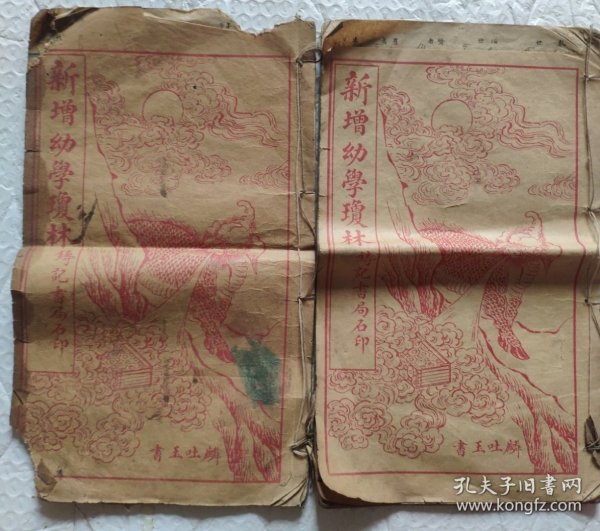 新增幼學瓊林
記書局石印
麟吐玉書
新增幼學瓊林
記書局石印
麟吐玉書
孔夫子旧书网
www.kongfz.com